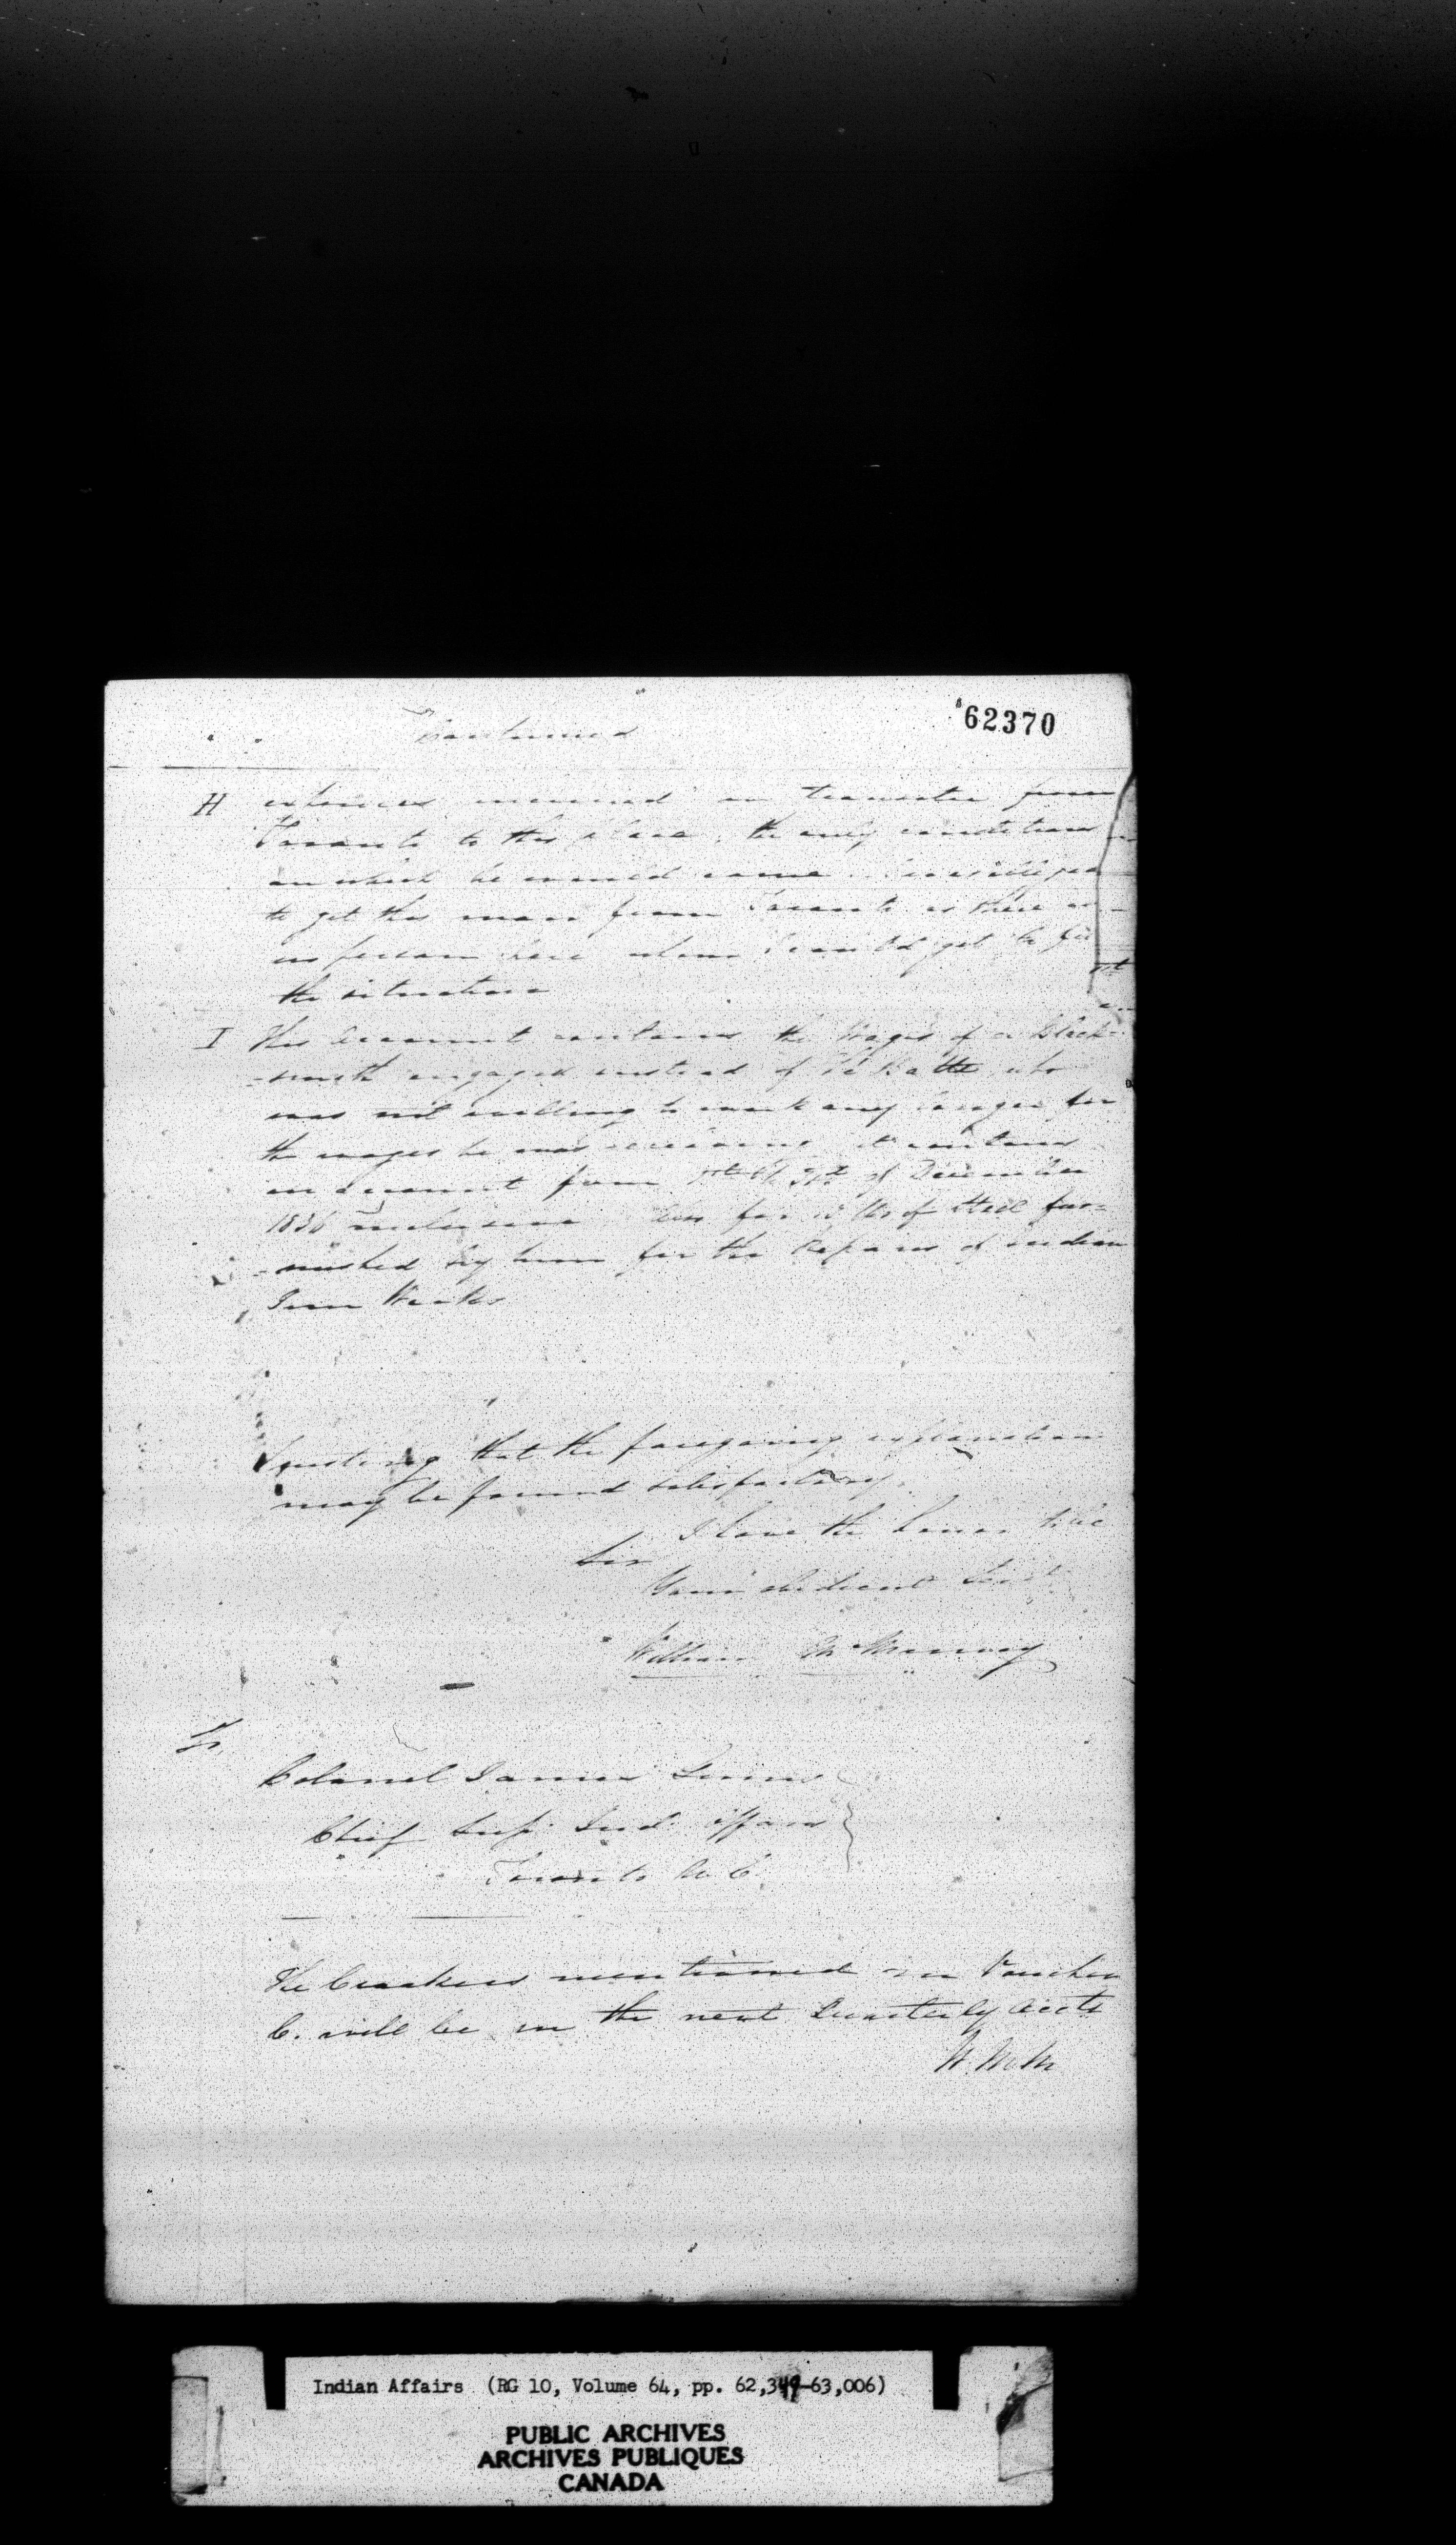 62370
Continued
H expences incurred in transit from
Toronto to this place, the only conditions
on which he would come.
to get this man from Toronto as there
no person here whom I could get to fill
the situation
I This Account contains the Wages of a Black-
-smith engaged instead of who
was not willing to work any longer for
the wages he was receiving it contains
an account from of December
1836 inclusive Also for lbs of Steel fur-
-nished by him for the Repairs of indian
Iron Works
Trusting that the foregoing explanation
may be found satisfactory.
I have the honor to be
Sir
Your obedient Servt
William
To
Colonel James Givins
Chief Supt Ind. Affairs
Toronto U. C.
The Crackers mentioned in Voucher
C. will be in the next Quarterly Accts
W. McM
Indian Affairs (RG 10, Volume 64, pp. 62,349-63,006)
PUBLIC ARCHIVES
ARCHIVES PUBLIQUES
CANADA